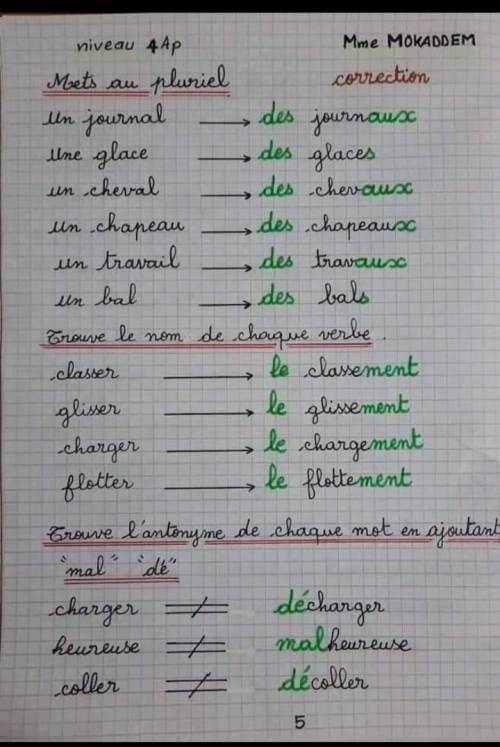 niveau 4Ap Mme MOKADDEM
Mets au pluriel correction
un journal → des journaux
une glace → des glaces
un cheval → des chevaux
un chapeau → des chapeaux
un travail → des travaux
un bal → des bals
Trouve le nom de chaque verbe.
classer → le classement
glisser → le glissement
charger → le chargement
flotter → le flottement
Trouve l'antonyme de chaque mot en ajoutant
"mal" "dé"
charger ≠ décharger
heureuse ≠ malheureuse
coller ≠ décoller
5